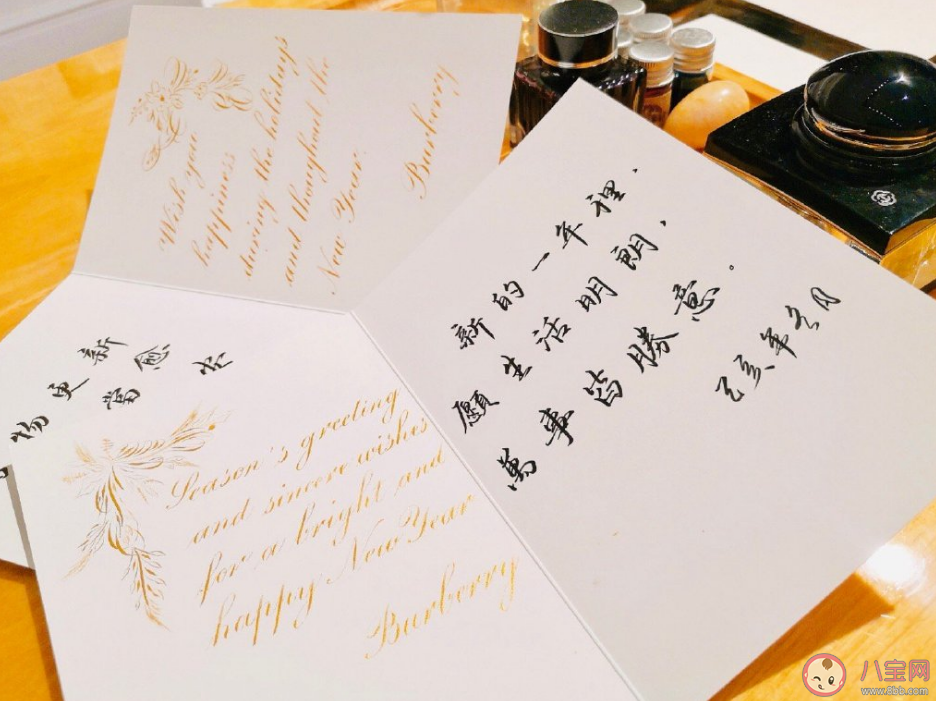 Wish you
happiness
during the holidays
and thoughout the
New Year.
Burberry
新的一年裡,
願生活明朗,
萬事皆勝意。
己亥年冬月
物更新
Season's greeting
and sincere wishes
for a bright and
happy New Year
Burberry
八宝网
www.8bb.com